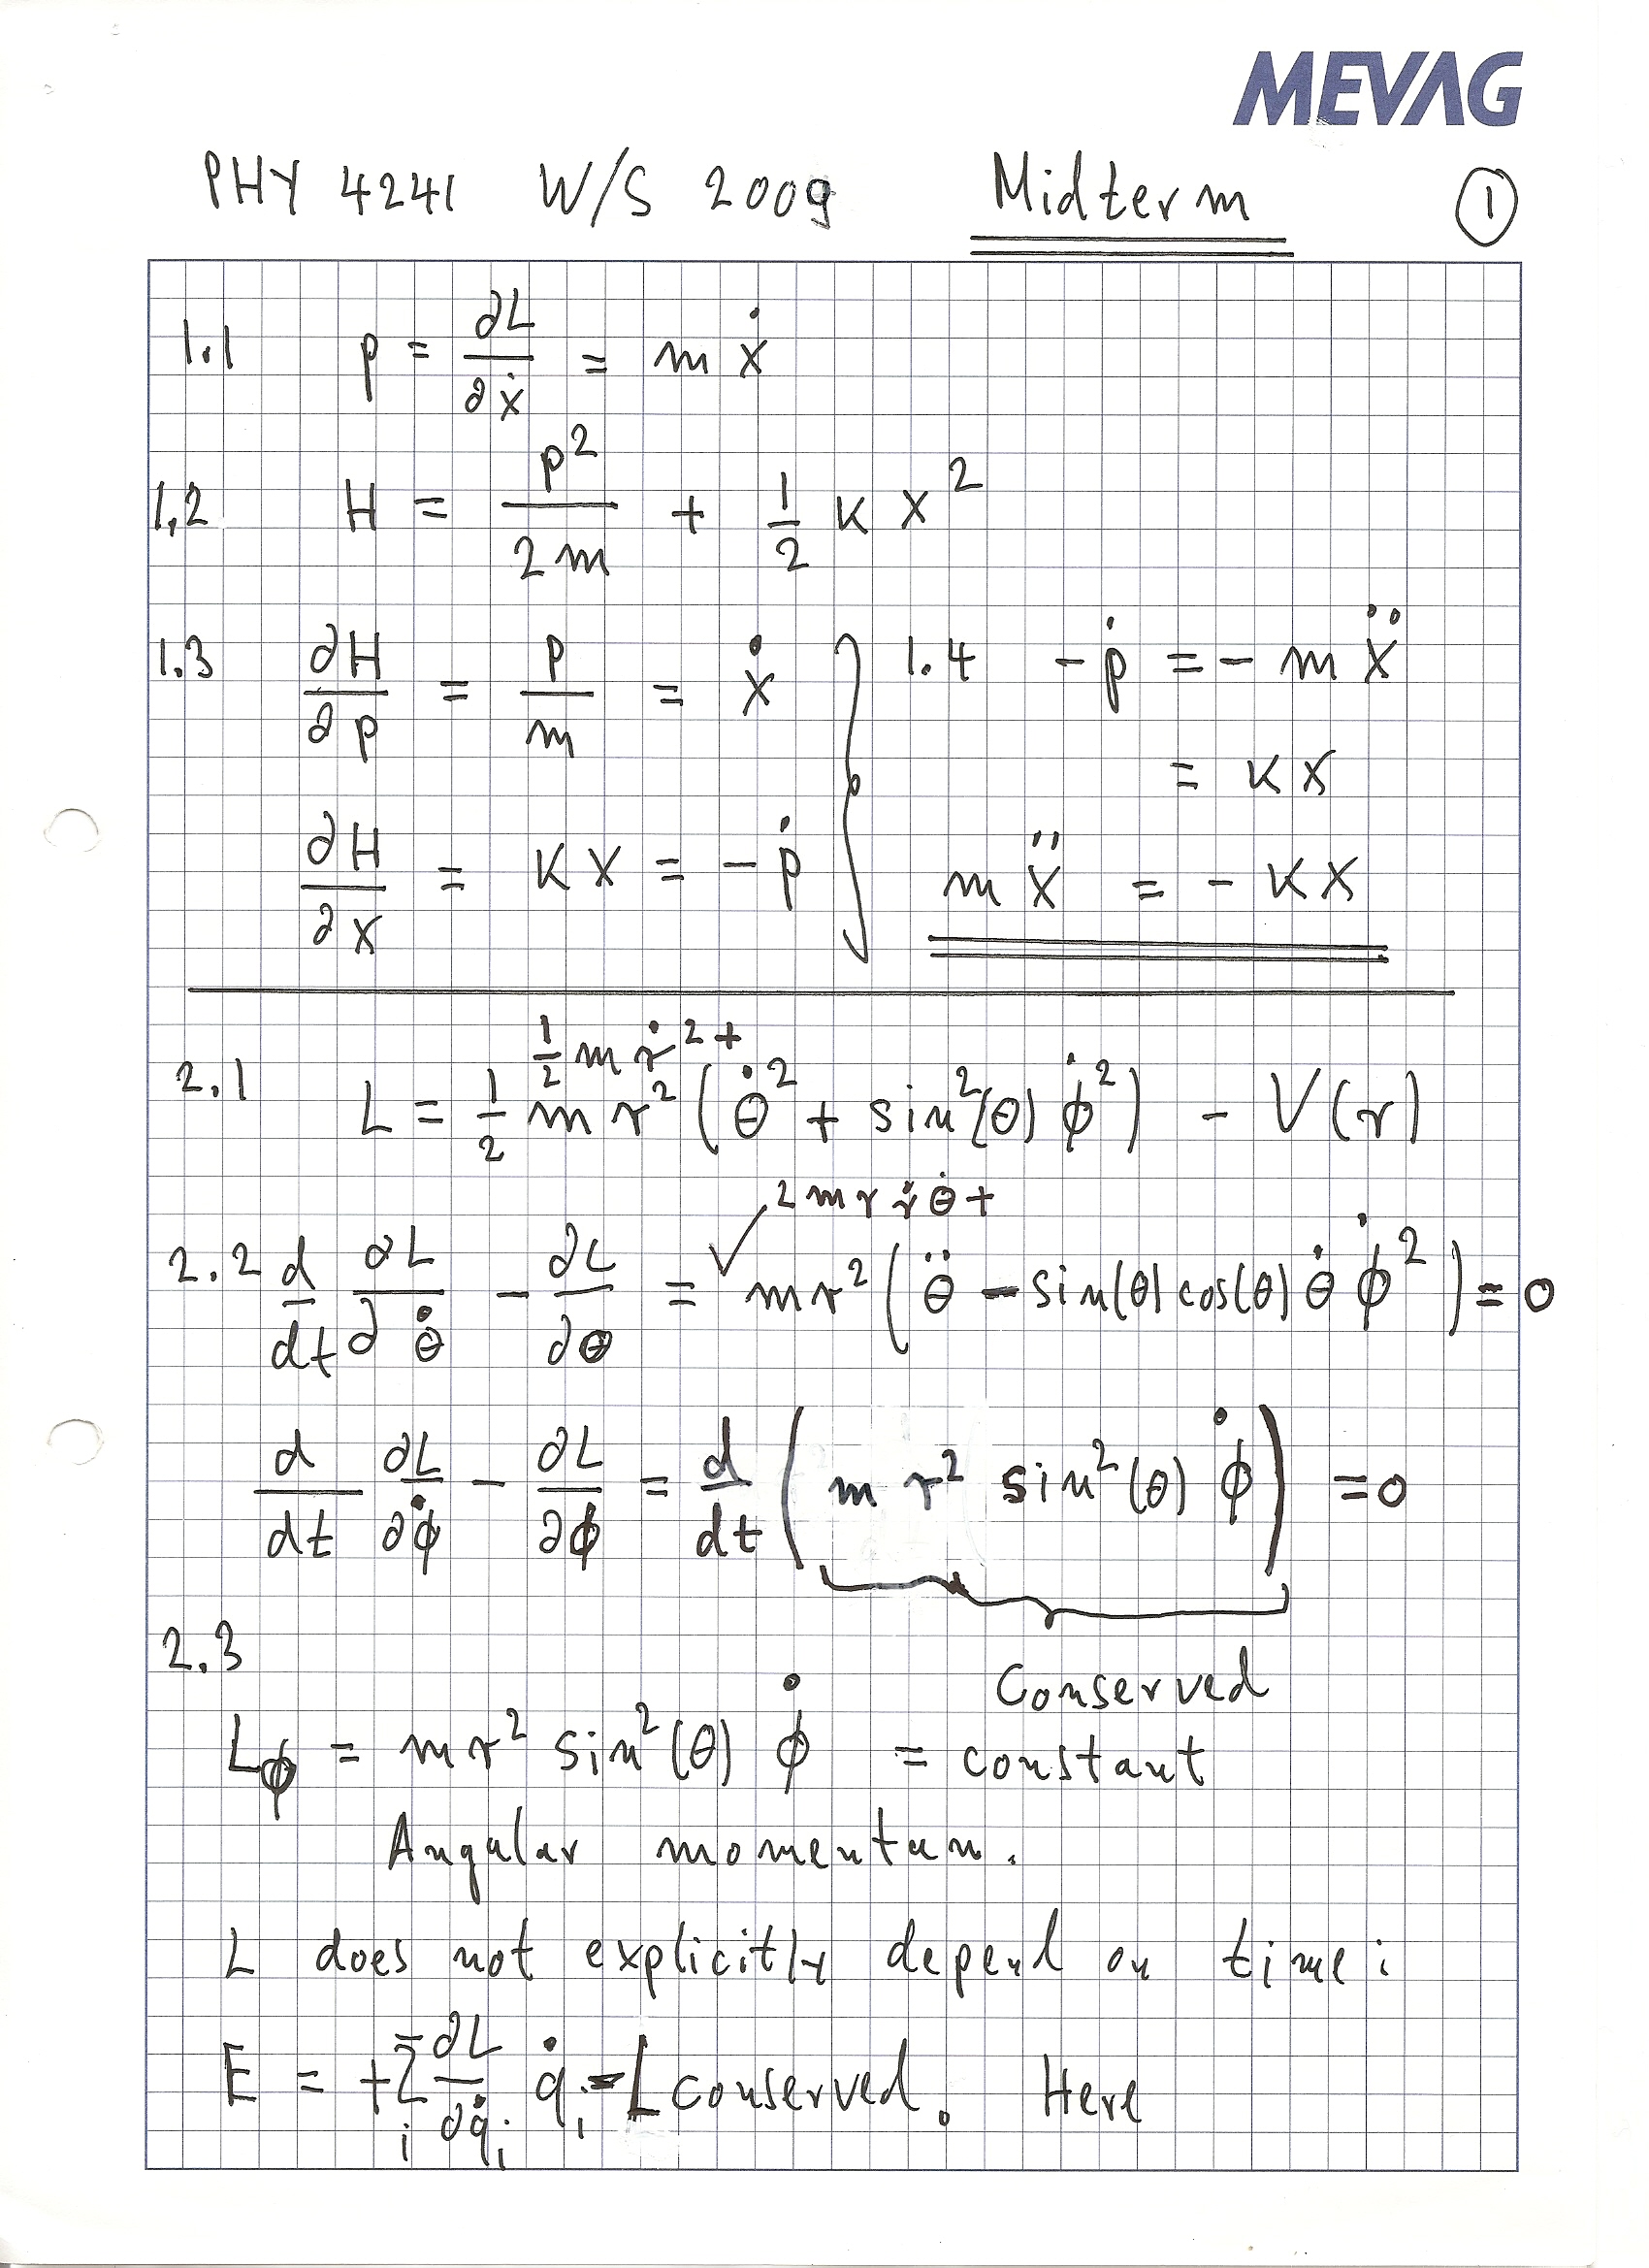 MEVAG
PHY 4241 W/S 2009 Midterm ①
1.1 p = ∂L/∂ẋ = m ẋ
1.2 H = p²/2m + 1/2 K x²
1.3 ∂H/∂p = p/m = ẋ
∂H/∂x = K x = - ṗ
1.4 - ṗ = - m ẍ
= K x
m ẍ = - K x
1/2 m ṙ² +
2.1 L = 1/2 m r² ( θ̇² + sin²(θ) ϕ̇² ) - V(r)
2 m r ṙ θ̇ +
2.2 d/dt ∂L/∂θ̇ - ∂L/∂θ = m r² ( θ̈ - sin(θ) cos(θ) θ̇ ϕ̇² ) = 0
d/dt ∂L/∂ϕ̇ - ∂L/∂ϕ = d/dt ( m r² sin²(θ) ϕ̇ ) = 0
Conserved
2.3
L_ϕ = m r² sin²(θ) ϕ̇ = constant
Angular momentum.
L does not explicitly depend on time:
E = + Σ_i ∂L/∂q̇_i q̇_i - L conserved. Here